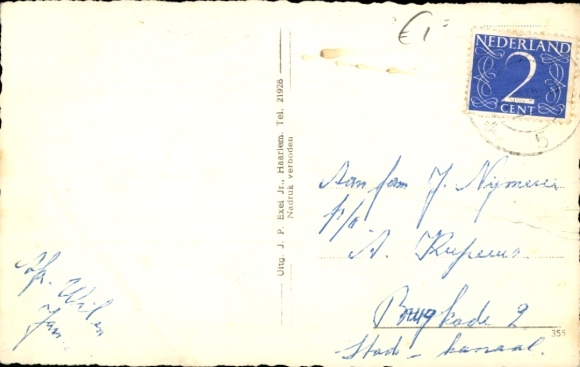 €1
NEDERLAND
2
CENT
5
Uitg. J. P. Exel Jr., Haarlem. Tel. 21926
Nadruk verboden
Aan fam J. Nijmeier
p/a
A. Kupers
Brugkade 2
Stads-kanaal.
Afz. Wil en
Jan.
355